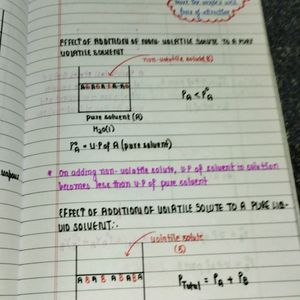 force of attraction
EFFECT OF ADDITION OF NON-VOLATILE SOLUTE TO A PURE
VOLATILE SOLVENT
non-volatile solute(B)
A B A B A B A B A
P_A < P°_A
pure solvent (A)
H₂O(l)
P°_A = V.P of A (pure solvent)
On adding non-volatile solute, V.P of solvent in solution
becomes less than V.P of pure solvent
EFFECT OF ADDITION OF VOLATILE SOLUTE TO A PURE LIQ-
UID SOLVENT:-
volatile solute
(B)
A B A B A B A B A
P_Total = P_A + P_B